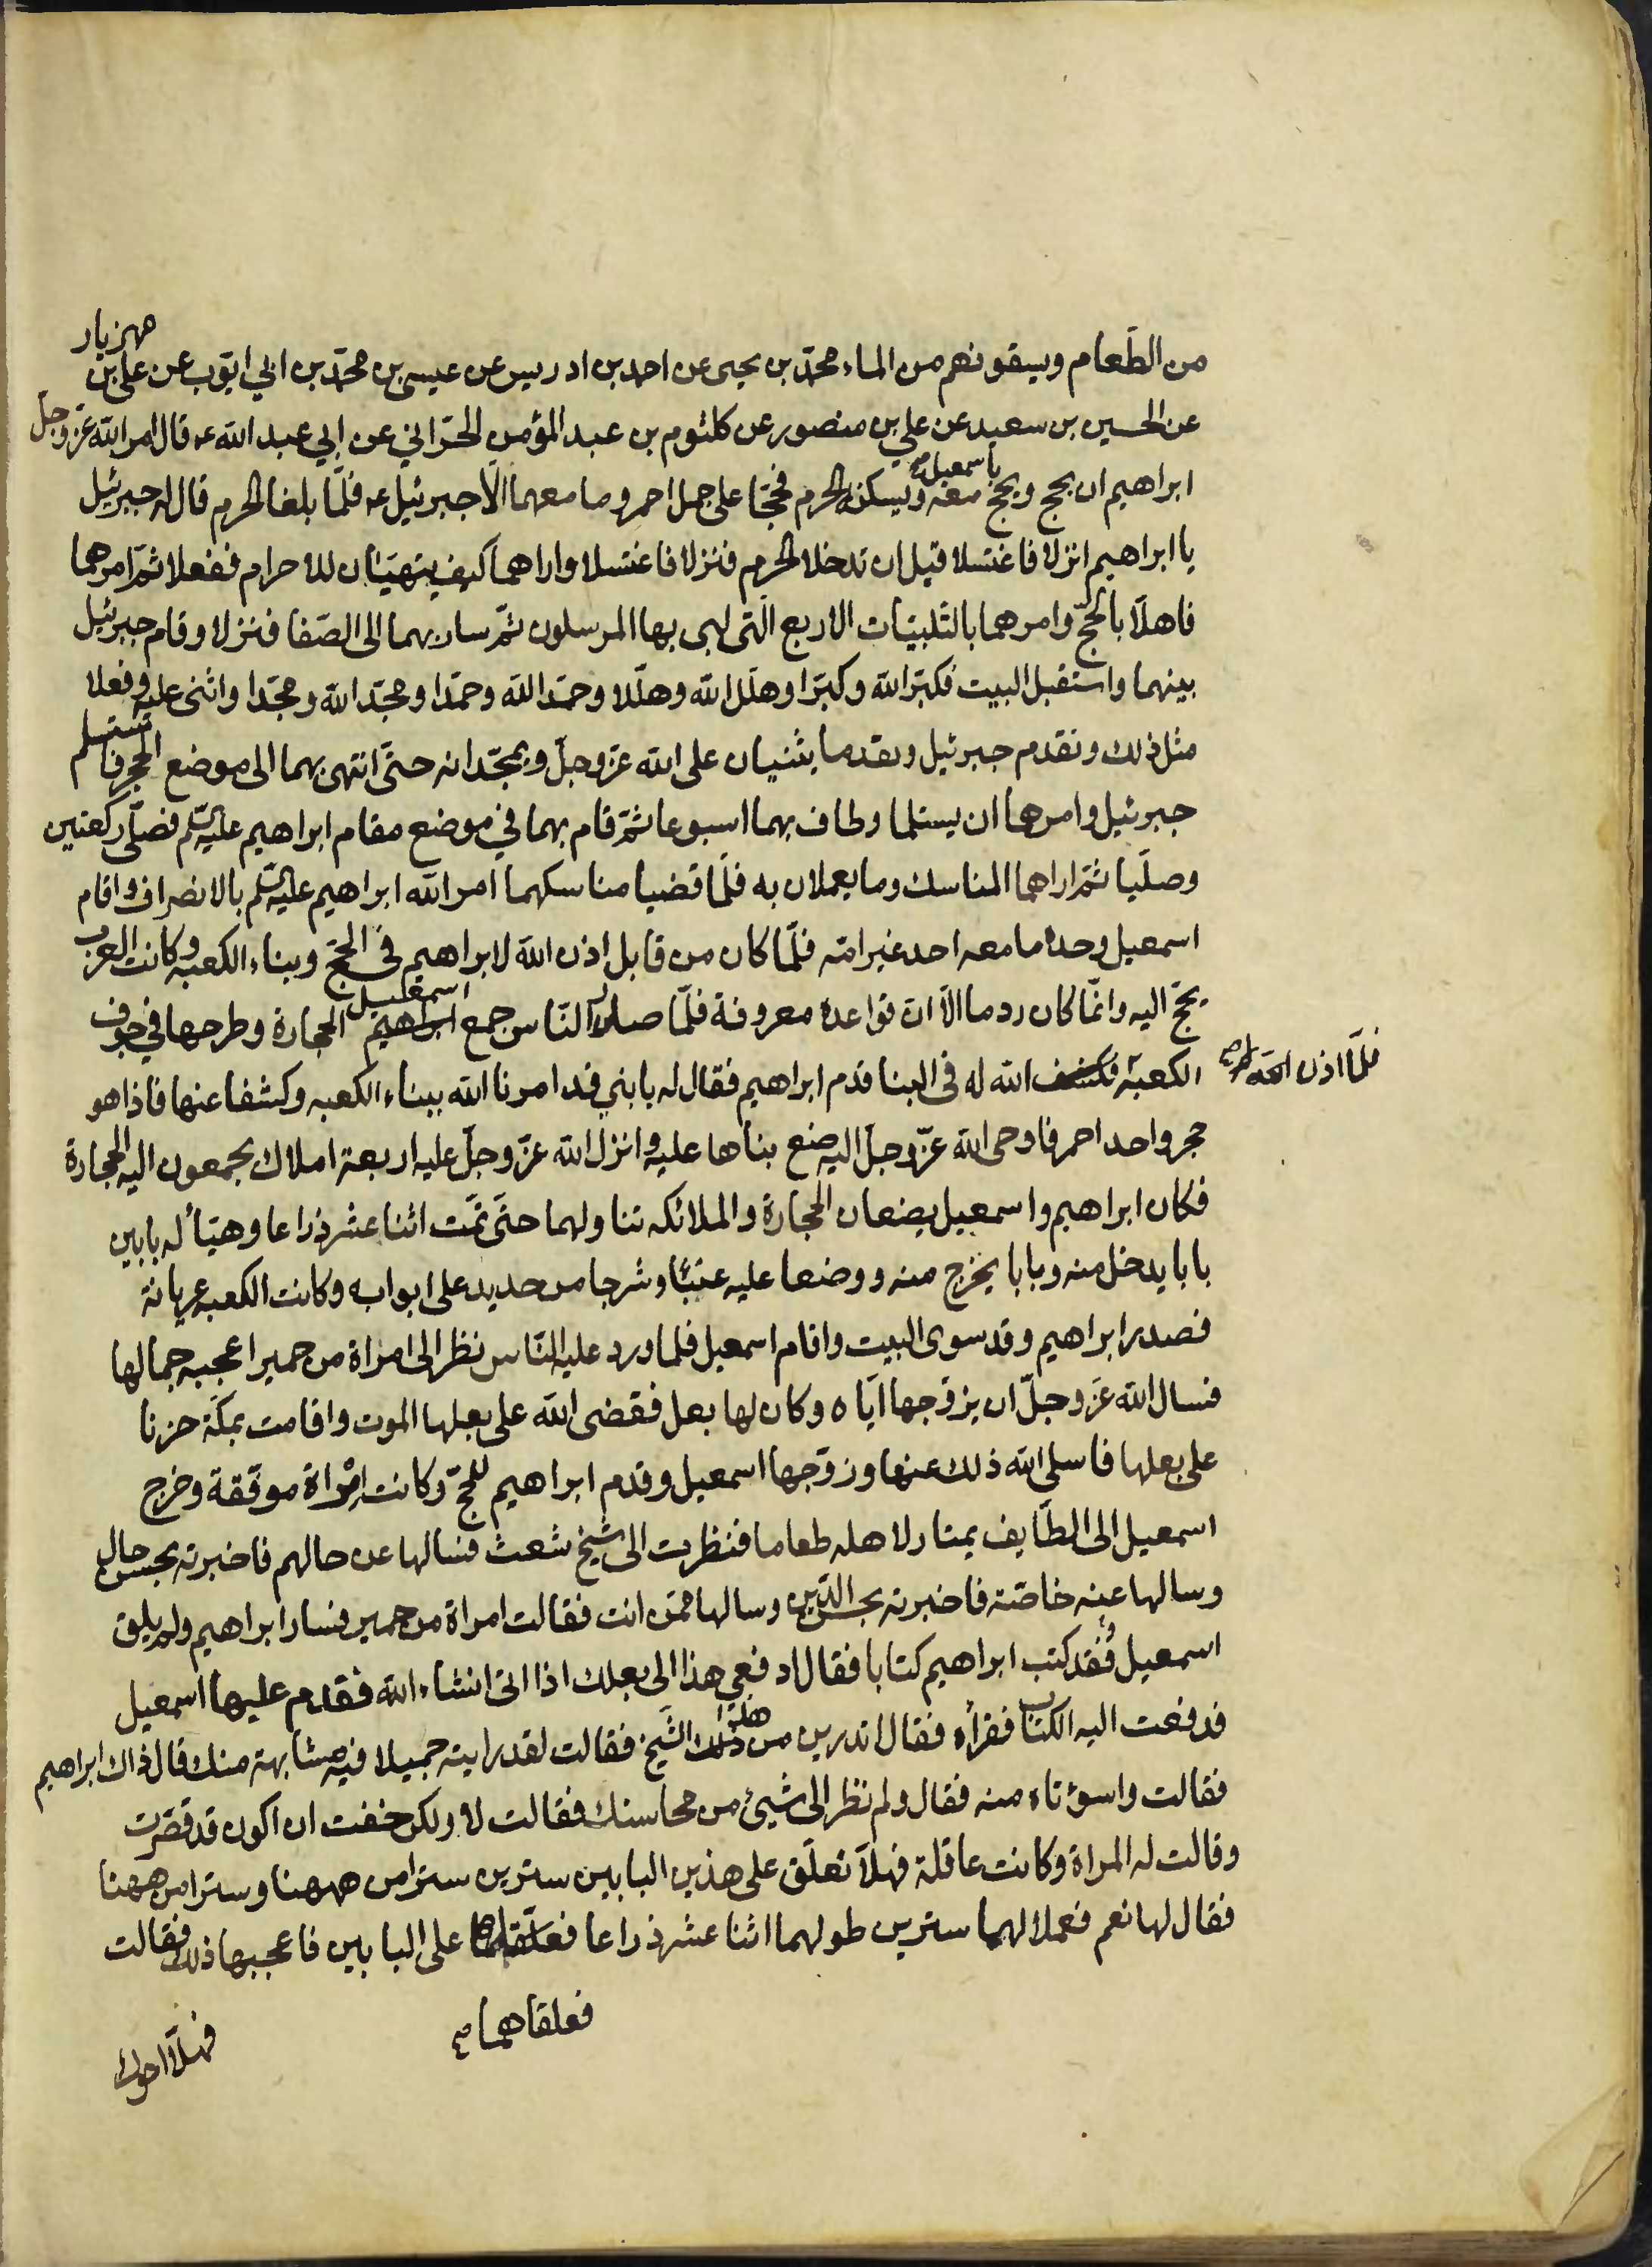 مهزيار
من الطَعام ويسقونهم من الماء محمّد بن يحيى عن احمد بن ادريس عن عيسى بن محمّد بن ابي ايّوب عن على بن
عن الحسين بن سعيد عن علي بن منصور عن كلثوم بن عبد المؤمن الحرّاني عن ابي عبد الله ع قال امر الله عزّ وجلّ
باسمعيل
ابراهيم ان يحج ويحج معه ويسكنه الحرم فحجّا على جمل احمر وما معهما الّا جبرئيل ع فلمّا بلغا الحرم قال له جبرئيل
يا ابراهيم انزلا فاغتسلا قبل ان تدخلا الحرم فنزلا فاغتسلا واراهما كيف يتهيّئان للاحرام ففعلا ثمّ امرهما
فاهلّا بالحجّ وامرهما بالتّلبيّات الاربع الّتى لبى بها المرسلون ثمّ سار بهما الى الصّفا فنزلا وقام جبرئيل
بينهما واستقبل البيت فكبّر الله وكبّرا وهلّل الله وهلّلا وحمّد الله وحمّدا ومجّد الله ومجّدا واثنى عليه وفعلا
مثل ذلك وتقدم جبرئيل وتقدما يثنيان على الله عزّ وجلّ ويمجّدانه حتّى انتهى بهما الى موضع الحجر فاستلم
جبرئيل وامرهما ان يستلما وطاف بهما اسبوعا ثمّ قام بهما في موضع مقام ابراهيم عليه السلم فصلّى ركعتين
وصلّيا ثمّ اراهما المناسك وما يعملان به فلمّا قضيا مناسكهما امر الله ابراهيم عليه السلم بالانصراف واقام
اسمعيل وحده ما معه احد غير امّه فلمّا كان من قابل اذن الله لابراهيم في الحجّ وبناء الكعبه وكانت العرب
اسمعيل
يحجّ اليه وانّما كان ردما الّا ان قواعده معروفة فلمّا صدر النّاس جمع ابراهيم الحجارة وطرحها في جوف
فلمّا اذن الله
الكعبة فكشف الله له فى البنا قدم ابراهيم فقال له يا بني قد امرنا الله ببناء الكعبه وكشفا عنها فاذا هو
حجر واحد احمر فاوحى الله عزّ وجلّ اليه ضع بناها عليه وانزل الله عزّ وجلّ عليه اربعة املاك يجمعون اليه الحجارة
فكان ابراهيم واسمعيل يضعان الحجارة والملائكه تناولهما حتّى تمّت اثنا عشر ذراعا وهيّأ له بابين
بابا يدخل منه وبابا يخرج منه ووضعا عليه عتبا وشرجا من حديد على ابوابه وكانت الكعبه عريانة
فصدر ابراهيم وقد سوى البيت واقام اسمعيل فلما ورد عليه النّاس نظر الى امراة من حمير اعجبه جمالها
فسال الله عَزّ وجلّ ان يزوّجها ايّاه وكان لها بعل فقضى الله على بعلها الموت واقامت بمكّة حزنا
على بعلها فاسلى الله ذلك عنها وزوّجها اسمعيل وقدم ابراهيم للحجّ وكانت امْراة موفّقة وخرج
اسمعيل الى الطّايف يمتار لاهله طعاما فنظرت الى شيخ شعث فسالها عن حالهم فاخبرته بحسن حال
وسالها عنه خاصّة فاخبرته بحسن الدّين وسالها ممّن انت فقالت امراة من حمير فسار ابراهيم ولم يلق
اسمعيل وقد كتب ابراهيم كتابا فقال ادفعي هذا الى بعلك اذا اتى انشاء الله فقدم عليها اسمعيل
هذا
فدفعت اليه الكتاب فقرأه فقال اتدرين من ذلك الشّيخ فقالت لقد رايته جميلا فيه مشابهة منك قال ذاك ابراهيم
فقالت واسوْتاه منه فقال ولم نظر الى شيئ من محاسنك فقالت لا ولكن خفت ان اكون قد قصّرت
وقالت له المراة وكانت عاقلة فهلّا تعلّق على هذين البابين سترين سترا من ههنا وسترا من ههنا
فقال لها نعم فعملا لهما سترين طولهما اثنا عشر ذراعا فعلّقاهما على البابين فاعجبها ذلك فقالت
فعلقاهما
فهلّا احوك